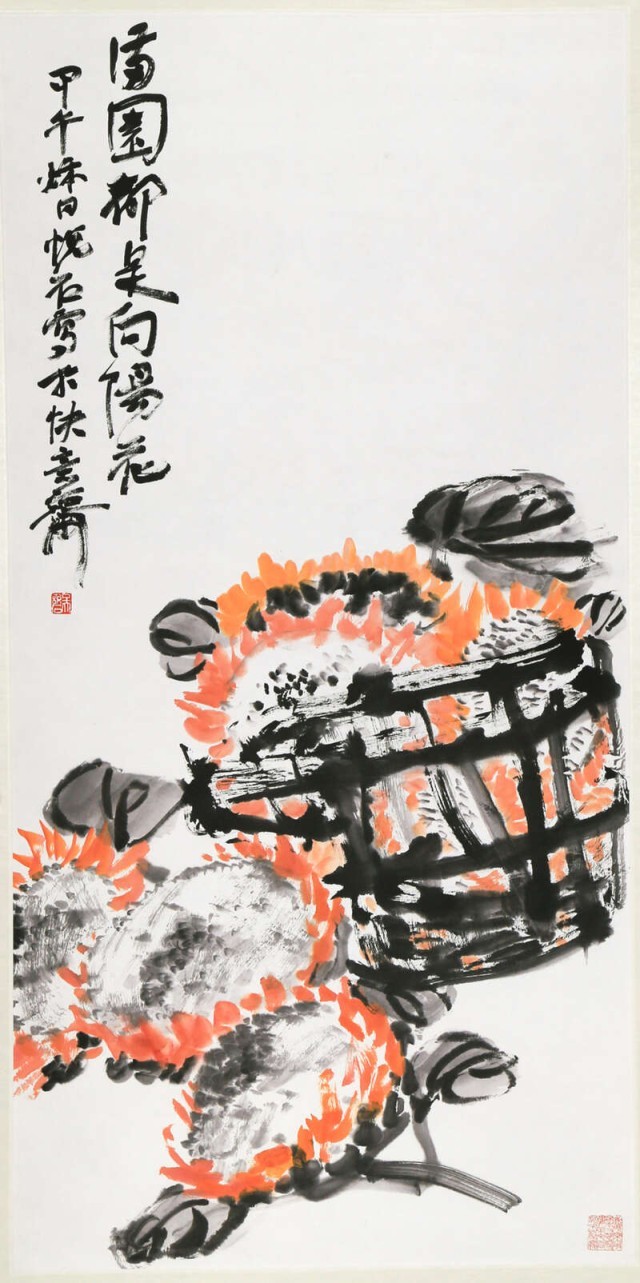 滿園都是向陽花
甲午秌日石寫於快意齋